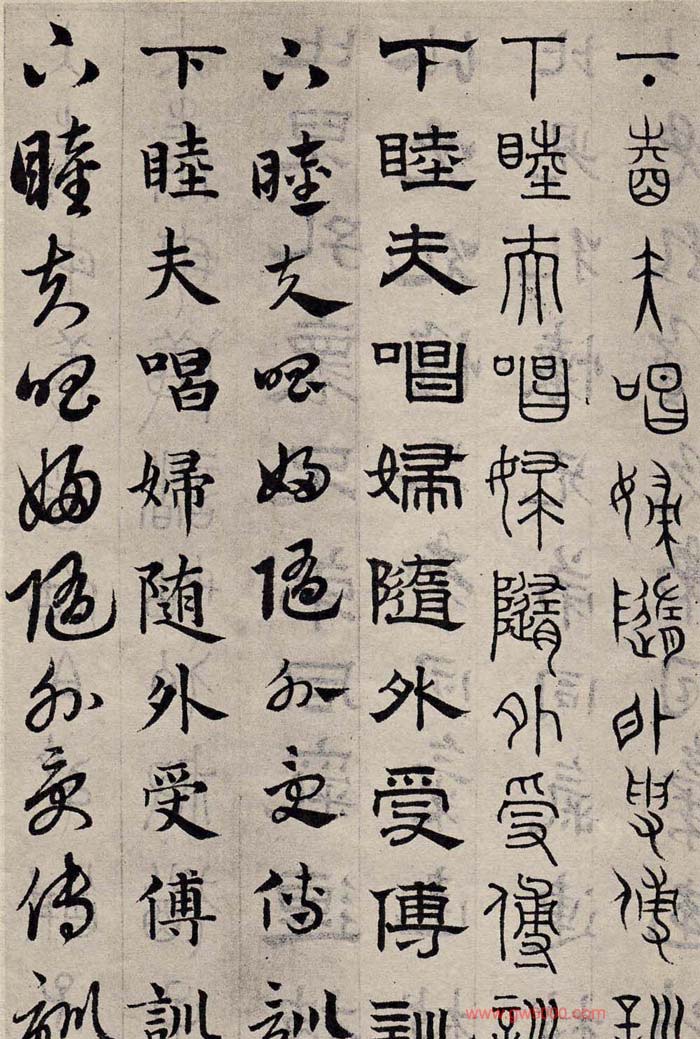 下睦夫唱婦隨外受傅訓
下睦夫唱婦隨外受傅訓
下睦夫唱婦隨外受傅訓
下睦夫唱婦隨外受傅訓
下睦夫唱婦随外受傅訓
下睦夫唱婦隨外受傅訓
www.gw8000.com